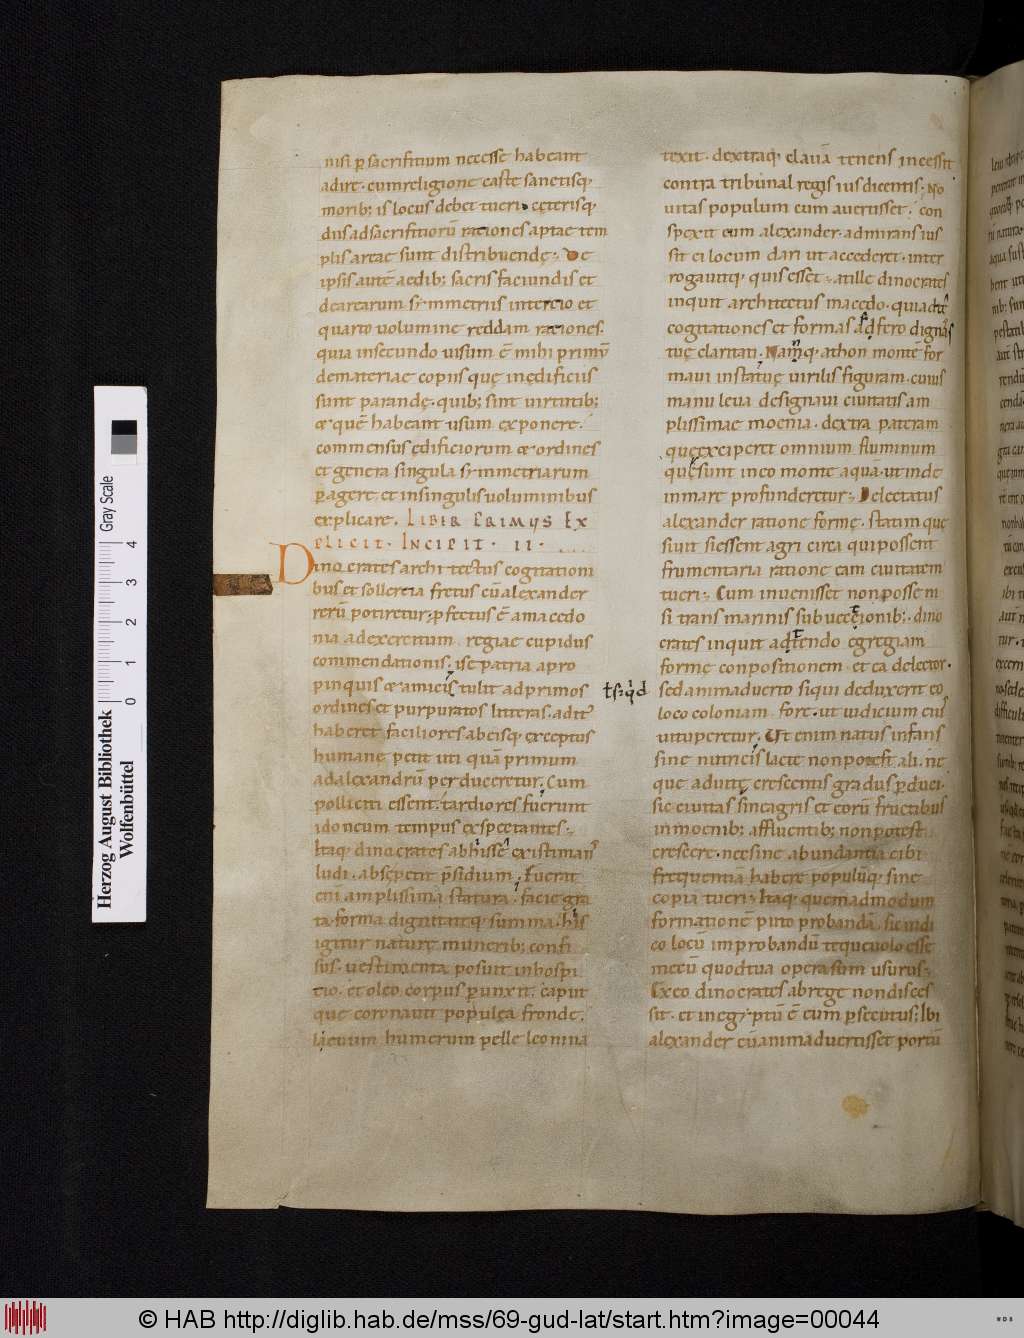 nisi p̲ sacrifitium necesse habeant
adire. cum religione caste sanctisq;
morib; is locus debet tueri. cęterisq;
diis ad sacrifitiorū rationes aptae tem
plis areae sunt distribuendę. De
ipsis autē aedib; sacris faciundis et
de arearum symmetriis in tercio et
quarto uolumine reddam rationes.
quia in secundo uisum ē mihi primū
de materiae copiis quę in ędificiis
sunt parandę. quib; sint uirtutib;
& quē habeant usum exponere.
commensus ędificiorum & ordines
et genera singula symmetriarum
p̲agere et in singulis uoluminibus
explicare. LIBER PRIMUS EX
PLICIT. INCIPIT. II.
Dinocrates architectus cogitationi
bus et sollercia fretus cū alexander
rerū potiretur. p̲fectus ē a macedo
nia ad exercitum regiae cupidus
commendationis. ise patria a pro
pinquis & amicis tulit ad primos
ordines et purpuratos litteras. aditū
haberet faciliores ab eisq; exceptus
humane petit uti quā primum
ad alexandrū perduceretur. Cum
polliciti essent. tardiores fuerunt
idoneum tempus exspectantes.
Itaq; dinocrates ab his se existimans
ludi. ab se petit p̄sidium. Fuerat
enī amplissima statura. facie gra
ta. forma dignitateq; summa. his
igitur naturę munerib; confi
sus. uestimenta posuit in hospi
tio. et oleo corpus p̲unxit. caput
que coronauit populea fronde.
lęuum humerum pelle leonina
texit. dextraq; clauā tenens incessit
contra tribunal regis ius dicentis. No
uitas populum cum auertisset. con
spexit eum alexander. admirans ius
sit ei locum dari ut accederet. inter
rogauitq; quis esset. at ille dinocrates
inquit architectus macedo. qui ad te
cogitationes et formas adfero dignas
tuę claritati. Namq; athon montē for
maui in statuę uirilis figuram. cuius
manu leua designaui ciuitatis am
plissimae moenia. dextra pateram
que exciperet omnium fluminum
quę sunt in eo monte aquā. ut inde
in mare profunderetur. Delectatus
alexander ratione formę. statim que
siuit si essent agri circa qui possent
frumentaria ratione eam ciuitatem
tueri. Cum inuenisset non posse ni
si transmarinis subuectionib;. dino
crates inquit adtendo egregiam
formę conpositionem et ea delector.
ts: qd
sed animaduerto si qui deduxerit eo
loco coloniam fore. ut iudicium eius
uituperetur. Ut enim natus infans
sine nutricis lacte non potest ali. ne
que ad uitę crescentis gradus p̲duci.
sic ciuitas sine agris et eorū fructibus
in moenib; affluentib; non potest
crescere. nec sine abundantia cibi
frequentiā habere populūq; sine
copia tueri. Itaq; quemadmodum
formationē puto probandā. sic iudi
co locū improbandū teque uolo esse
mecū quod tua opera sum usurus.
Ex eo dinocrates ab rege non disces
sit. et in egyptū ē eum p̲secutus; Ibi
alexander cū animaduertisset portū
Herzog August Bibliothek
Wolfenbüttel
0 1 2 3 4
Gray Scale
© HAB http://diglib.hab.de/mss/69-gud-lat/start.htm?image=00044